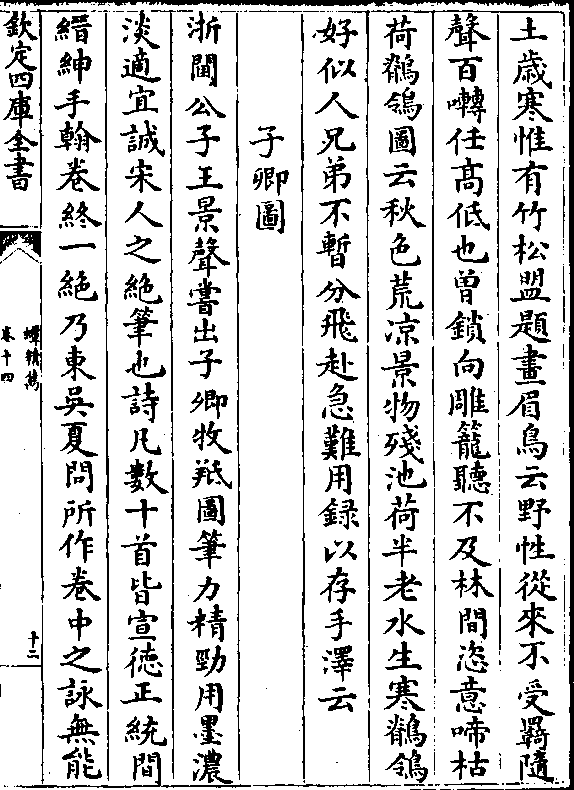 土歲寒惟有竹松盟題畫眉鳥云野性從來不受羈隨
聲百囀任髙低也曽鎖向雕籠聽不及林間恣意啼枯
荷鶺鴒圖云秋色荒凉景物殘池荷半老水生寒鶺鴒
好似人兄弟不暫分飛赴急難用録以存手澤云
子卿圖
浙閫公子王景聲嘗出子卿牧羝圖筆力精勁用墨濃
淡適宜誠宋人之絶筆也詩凡數十首皆宣徳正統間
縉紳手翰卷終一絶乃東吳夏問所作卷中之詠無能
欽定四庫全書
蟫精雋
卷十四
十二